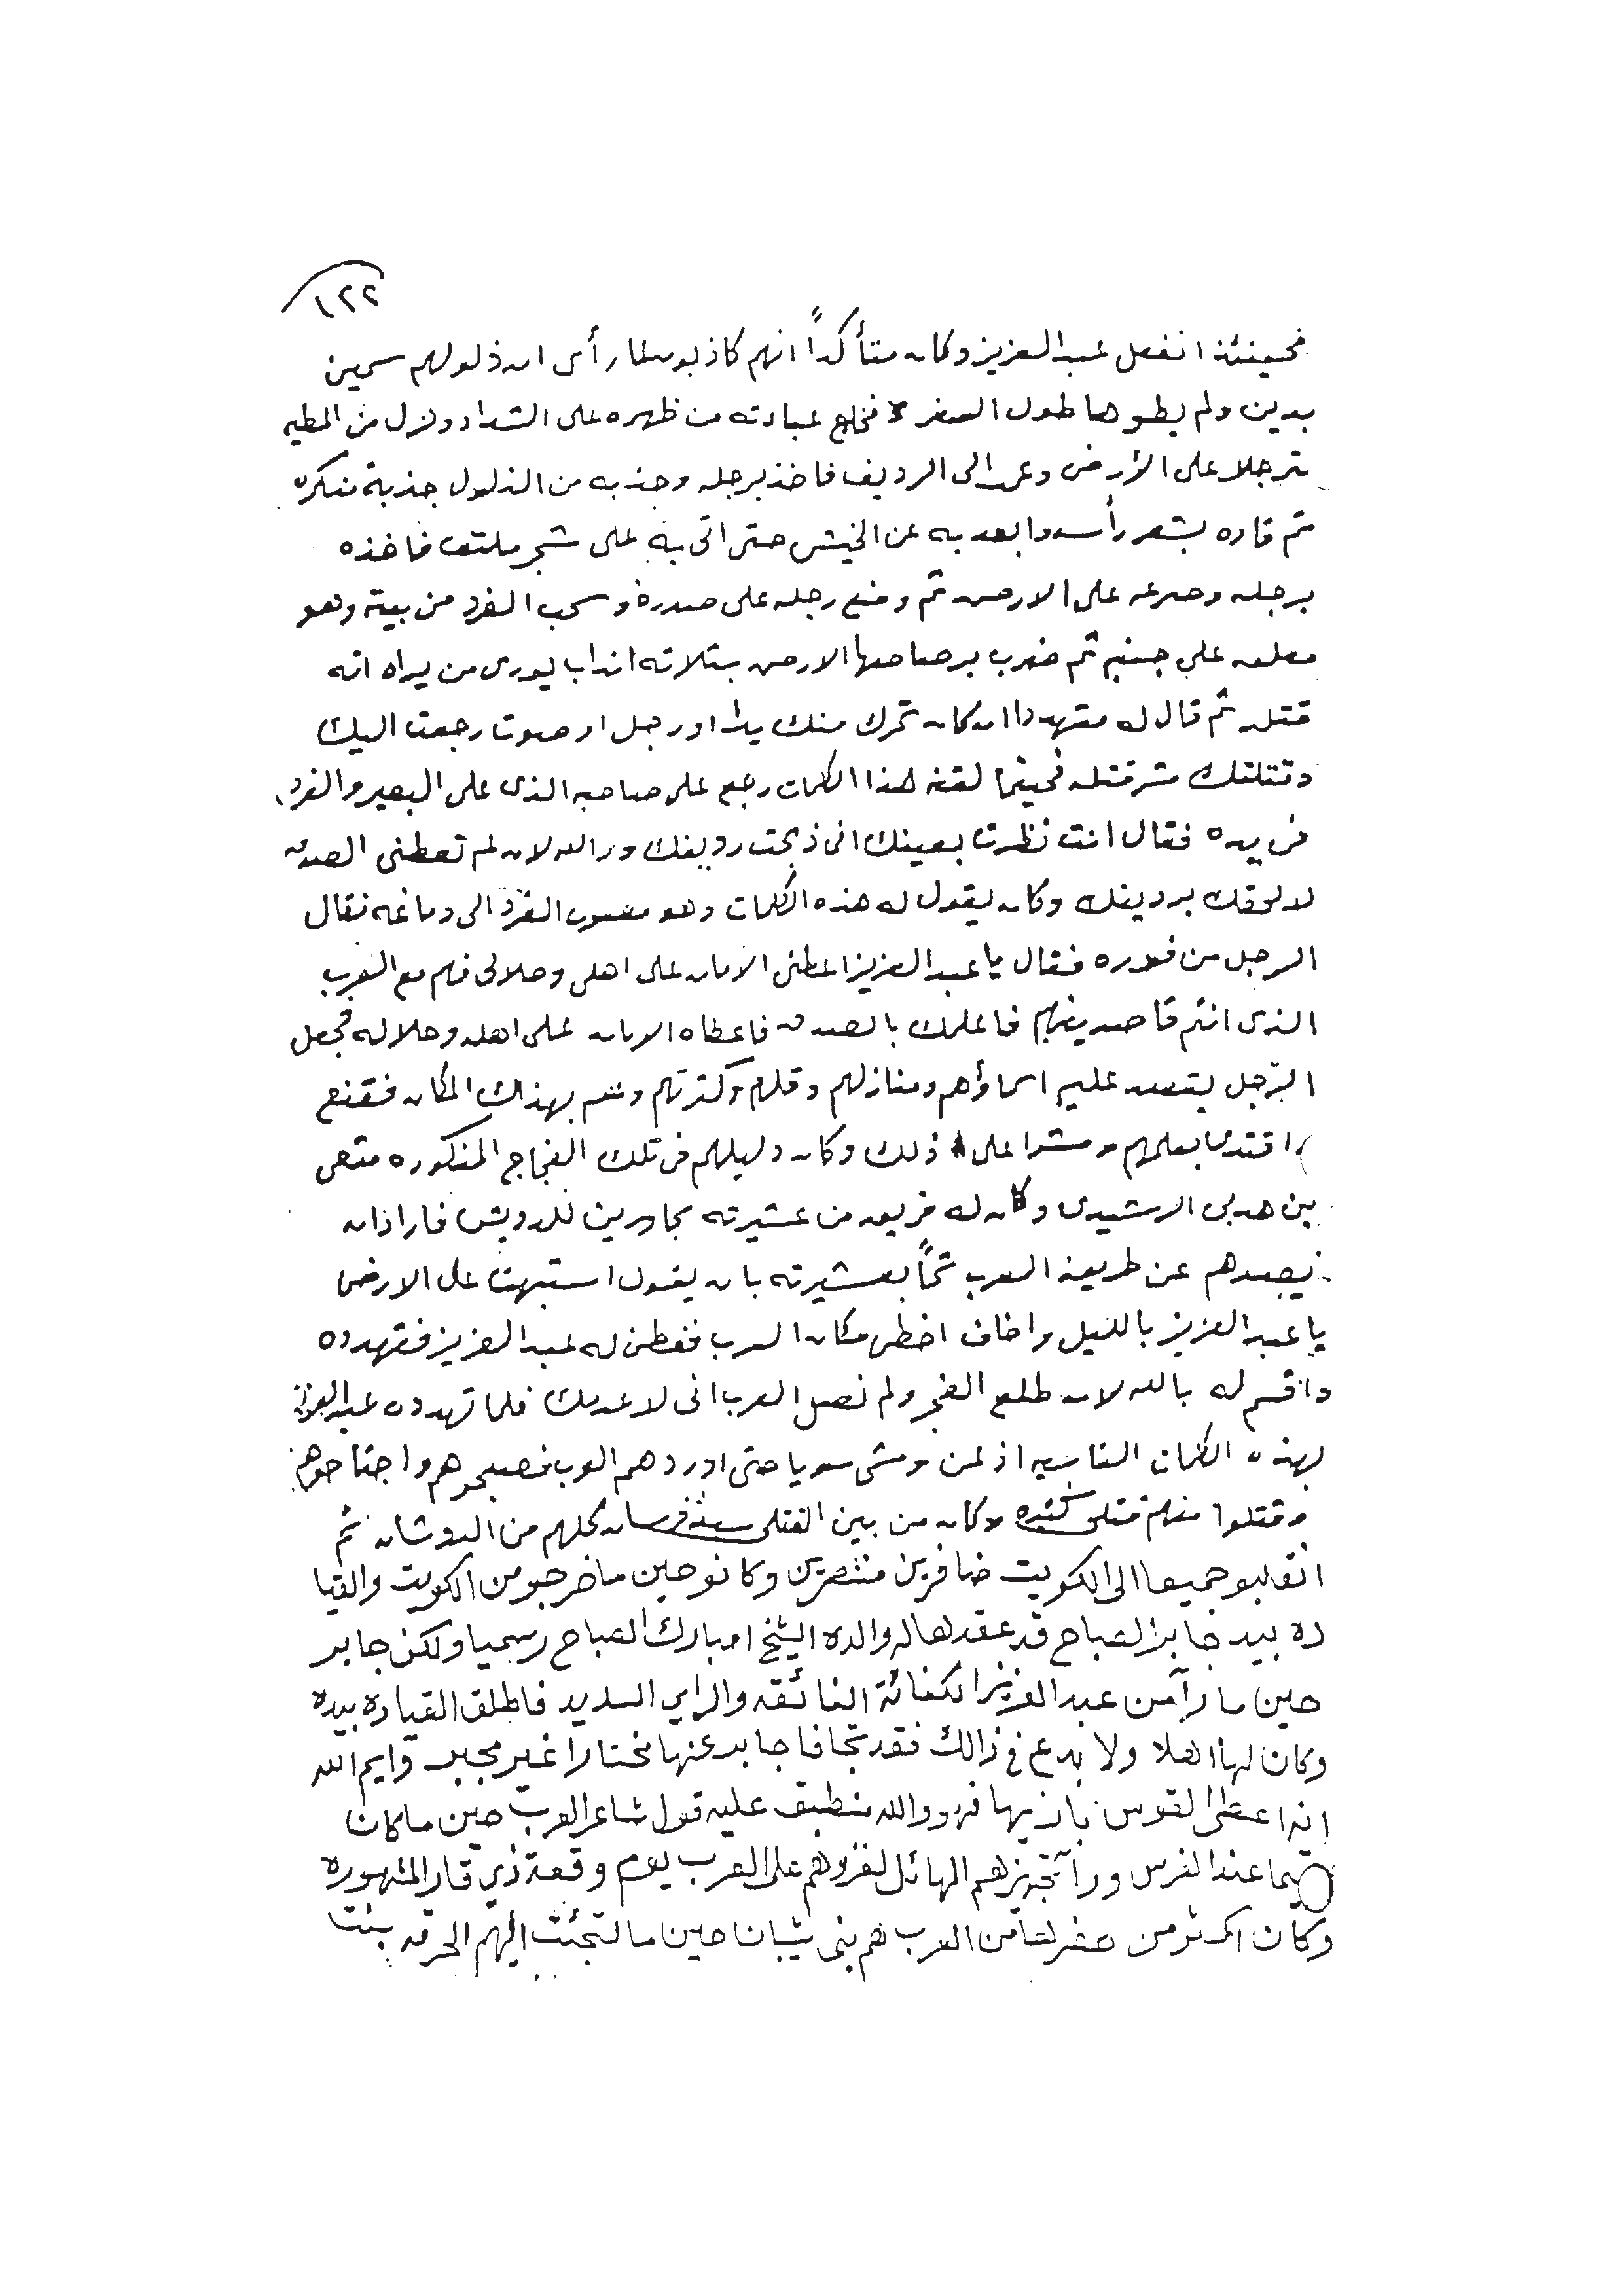 ١٢٢
فحينئذ انفعل عبدالعزيز وكان متأكداً انهم كاذبون لما رأى ان ذلولهم سمين
بدين ولم يطوها طول السفر فخلع عباءته من ظهره على الشداد ونزل من المطيه
مترجلا على الأرض وعمد الى الرديف فاخذ برجله وجذبه من الذلول جذبة منكره
ثم قاده بشعر رأسه وابعد به عن الخيش حتى اتى به على شجر ملتف فاخذه
برجله وصرعه على الارض ثم وضع رجله على صدرة وسحب الفرد من بيته وهو
معلق على جنبه ثم ضرب برصاصها الارض بثلاثه انداب ليورى من يراه انه
قتله ثم قال له متهددا ان كان تحرك منك يدا او رجل او صوت رجعت اليك
وقتلتك شر قتله فحينما لقنه هذا الكلمات رجع على صاحبه الذى على البعير والفرد
فى يده فقال انت نظرت بعينك انى ذبحت رديفك ووالله لان لم تعطنى الصدق
لالحقك برديفك وكان يقول له هذه الكلمات وهو مصوب الفرد الى دماغه فقال
الرجل من فوره فقال يا عبدالعزيز اعطنى الامان على اهلى وحلالى فهم مع العرب
الذى انتم قاصدينهم فاعلمك بالصدق فاعطاه الامان على اهله وحلاله فجعل
الرجل يقصد عليه اسماؤهم ومنازلهم وقلهم وكثرتهم وهم بهذاك المكان فقنع
واقتدى بعلمهم ومشوا على ذلك وكان دليلهم فى تلك الفجاج المذكوره متعى
بن هدبى الرشيدى وكان له فريق من عشيرته مجاورين للدويش فاراد ان
يصدهم عن طريقة العرب شحاً بعشيرته بان يقول استبهت على الارض
يا عبدالعزيز بالليل واخاف اخطى مكان العرب ففطن له عبدالعزيز فتهدده
واقسم له بالله لان طلع الفجر ولم نصل العرب انى لاعدمك فلما تهدده عبدالعزيز
بهذه الكلمات القاسيه اذعن ومشى سويا حتى اوردهم العرب فصبحوهم واجتاحوهم
وقتلوا منهم قتلى كثيره وكان من بين القتلى ستة فرسان كلهم من الدوشان ثم
انقلبو جميعا الى الكويت ضافرين منتصرين وكانو حين ما خرجو من الكويت والقيا
ده بيد جابر الصباح قد عقدها له والده الشيخ امبارك الصباح رسميا ولكن جابر
حين ما رآ من عبدالعزيز الكفائة الفائقه والراي السديد فاطلق القياده بيده
وكان لها اهلا ولا بدع في ذالك فقد تجافا جابر عنها مختارا غير مجبر وايم الله
انه اعطى القوس باريها فهو والله منطبق عليه قول شاعر العرب حين ما كان
مقيما عند الفرس ورآ تجهيزهم الهائل لغزوهم على العرب يوم وقعة ذي قار المشهوره
وكان اكثر من حضر لها من العرب هم بنى شيبان حين ما لتجئت اليهم الحرقه بنت